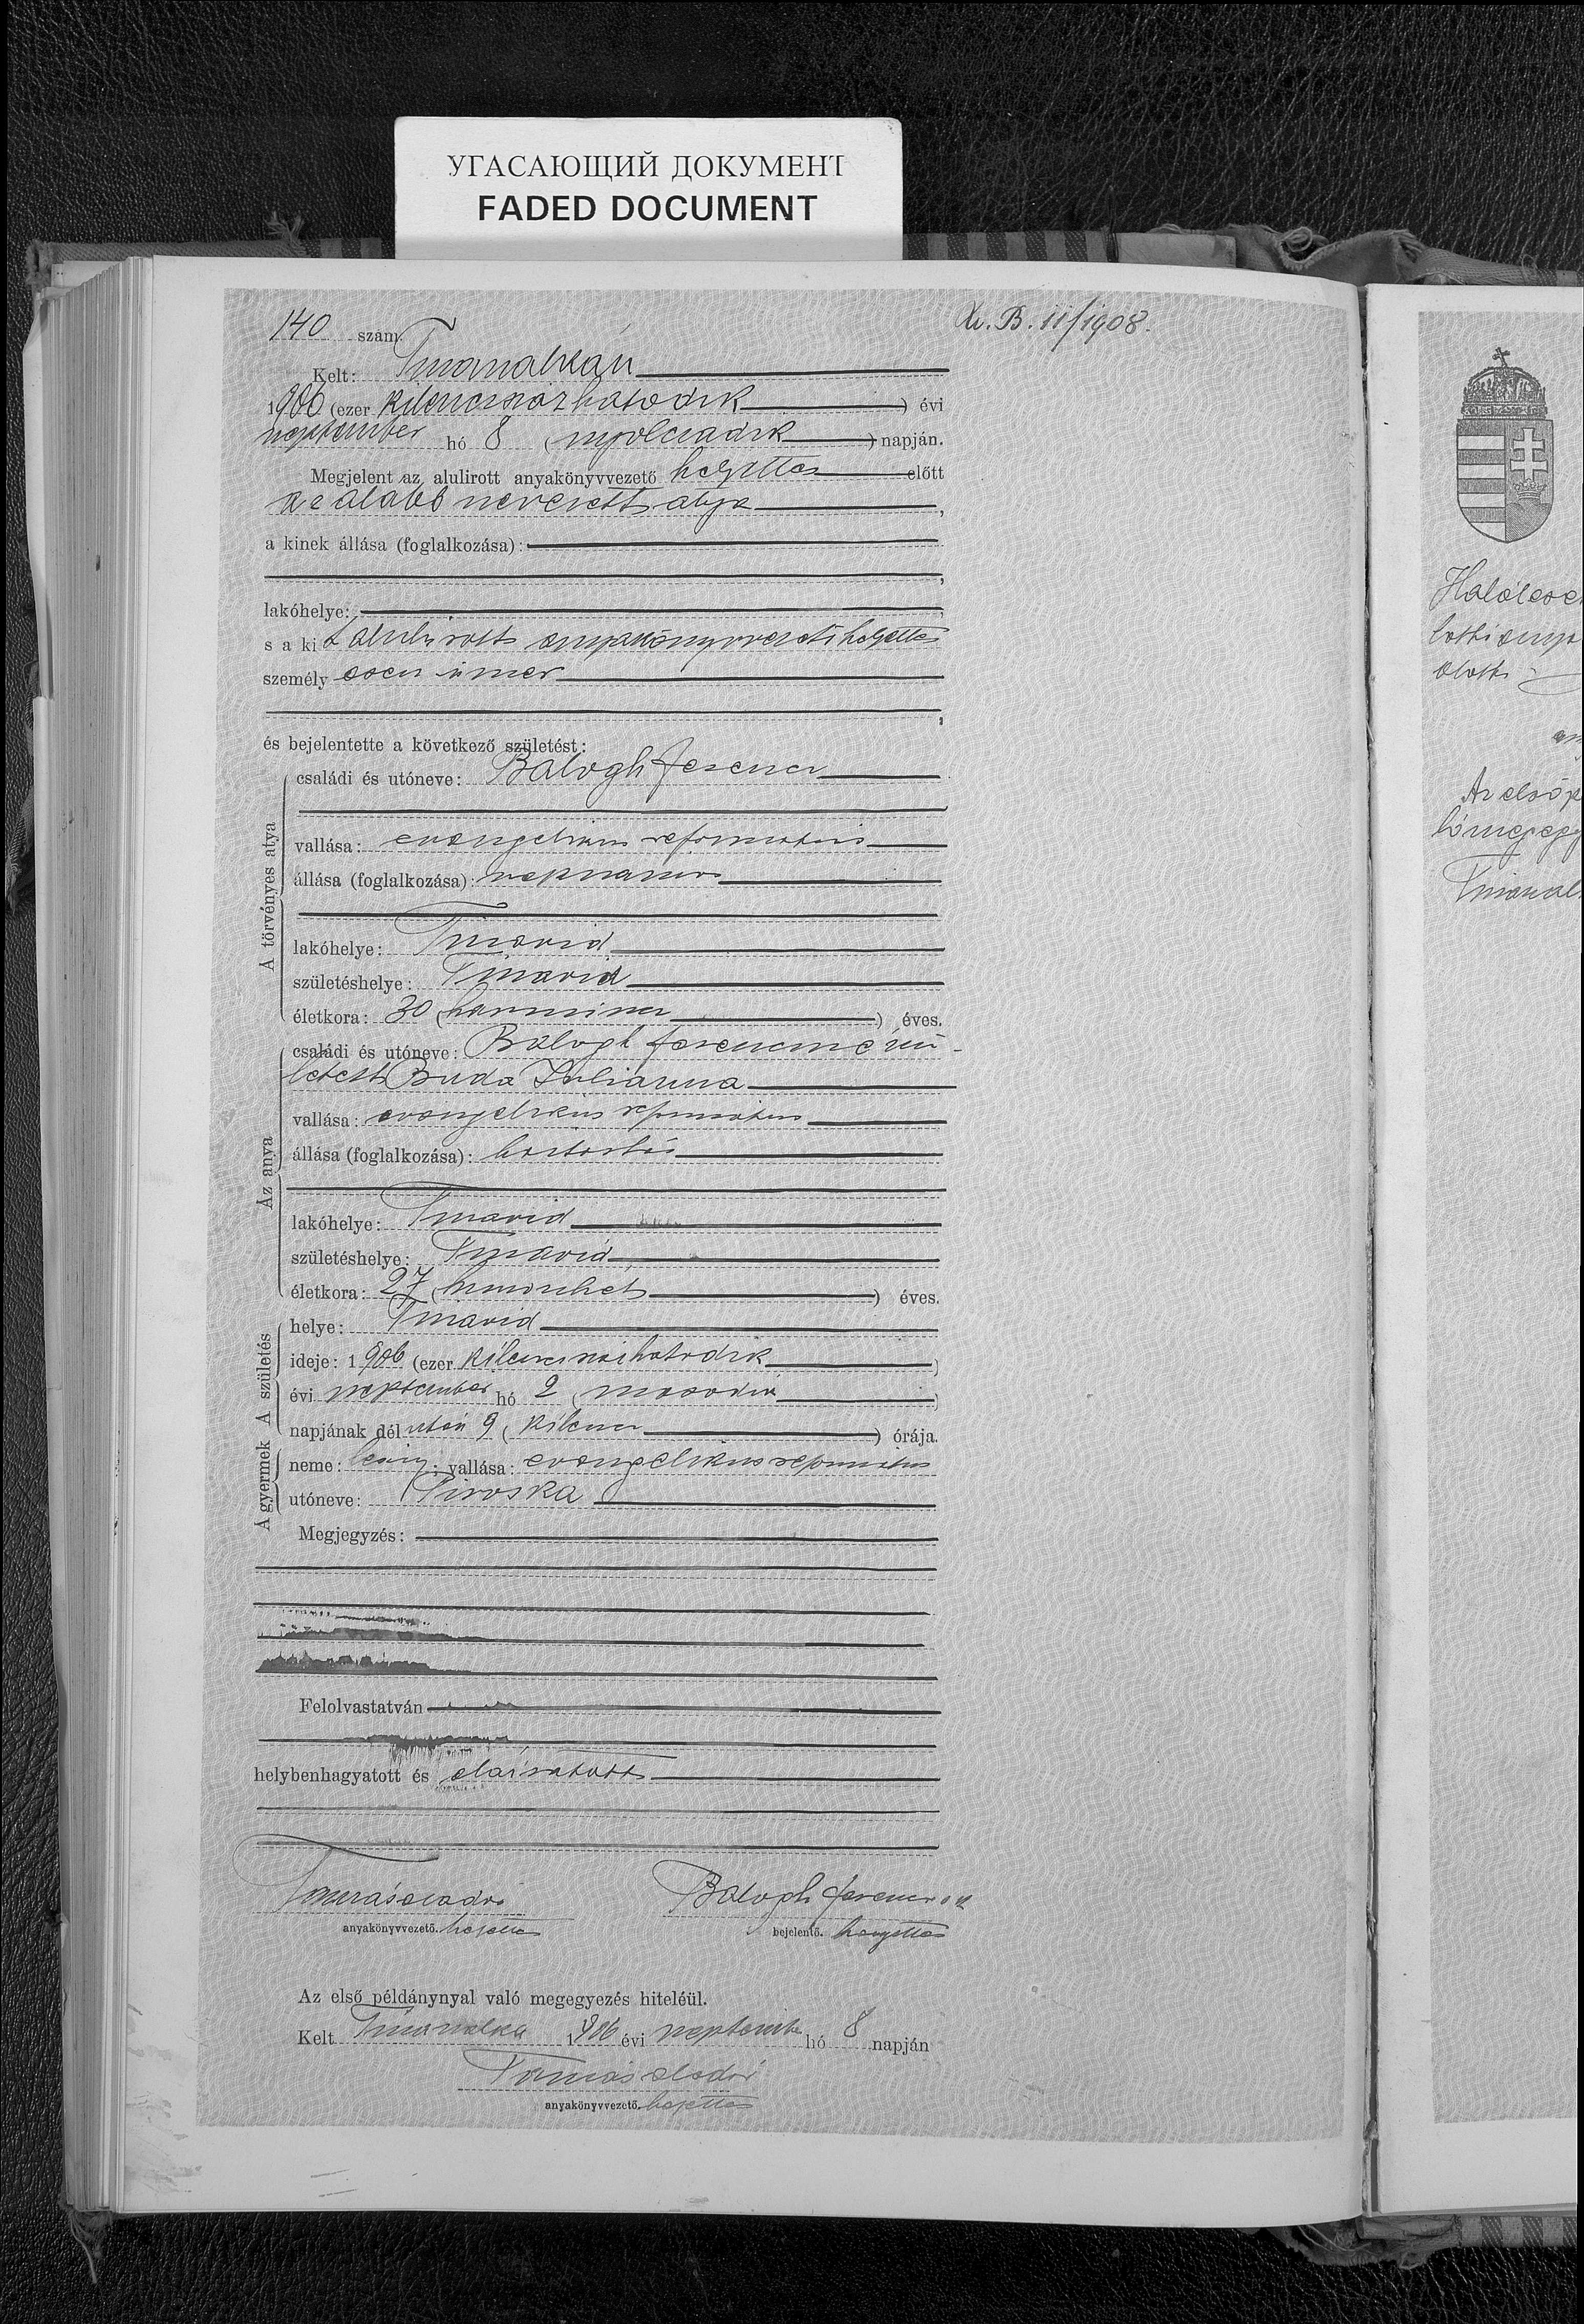 УГАСАЮЩИЙ ДОКУМЕНТ
FADED DOCUMENT
140 szám.
B. 11/1908.
Kelt:
1906 (ezer kilencszázhatodik) évi
szeptember hó 8 (nyolczadik) napján.
Megjelent az alulirott anyakönyvvezető helyettes előtt
az alább nevezett atya,
a kinek állása (foglalkozása):
lakóhelye:
s a ki alulirott anyakönyvvezető helyettes
személy esen ismer
és bejelentette a következő születést:
A törvényes atya
családi és utóneve: Balogh Ferencz
vallása: evangelikus reformatus
állása (foglalkozása): napszámos
lakóhelye:
születéshelye:
életkora: 30 (harmincz) éves.
Az anya
családi és utóneve: Balogh Ferenczné szü-
letett Buda Juliánna
vallása: evangelikus reformatus
állása (foglalkozása): háztartás
lakóhelye:
születéshelye:
életkora: 27 (huszonhét) éves.
A születés
helye:
ideje: 1906 (ezer kilenczszázhatodik)
évi szeptember hó 2 (második)
napjának dél után 9 (kilencz) órája.
A gyermek
neme: leány; vallása: evangelikus reformatus
utóneve: Piroska
Megjegyzés:
Felolvastatván
helybenhagyatott és aláiratott
Balogh Ferencz
anyakönyvvezető. helyettes
bejelentő.
Az első példánynyal való megegyezés hiteléül.
Kelt 1906 évi szeptember hó 8 napján
anyakönyvvezető. helyettes